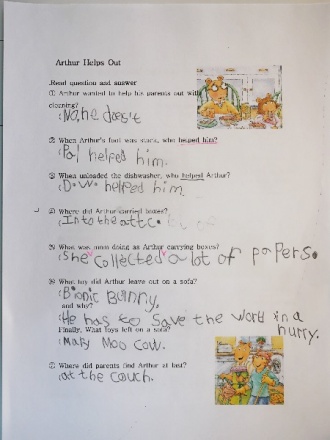 Arthur Helps Out
Read question and answer
① Arthur wanted to help his parents out with
cleaning?
: No, he does't
② When Arthur's foot was stuck, who helped him?
: Pal helped him.
③ When unloaded the dishwasher, who helped Arthur?
: D.W. helped him.
④ Where did Arthur carried boxes?
: Into the attc.
⑤ What was mom doing as Arthur carrying boxes?
: She collected a lot of papers.
⑥ What toy did Arthur leave out on a sofa?
: Bionic Bunny,
and why?
: He has to save the word in a hurry.
Finally, What toys left on a sofa?
: Mary Moo Cow.
⑦ Where did parents find Arthur at last?
: at the couch.